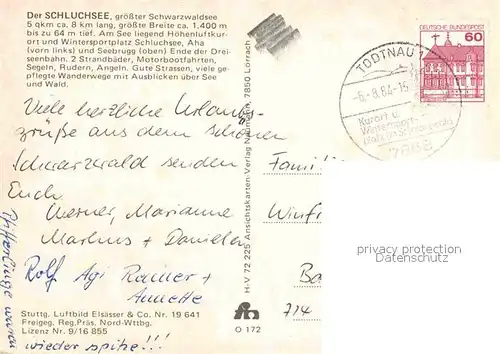 Der SCHLUCHSEE, größter Schwarzwaldsee
5 qkm ca. 8 km lang, größte Breite ca. 1,400 m
bis zu 64 m tief. Am See liegend Höhenluftkur-
ort und Wintersportplatz Schluchsee, Aha
(vorn links) und Seebrugg (oben). Ende der Drei-
seenbahn. 2 Strandbäder, Motorbootfahrten,
Segeln, Rudern, Angeln. Gute Strassen, viele ge-
pflegte Wanderwege mit Ausblicken über See
und Wald.
Viele herzliche Urlaubs-
grüße aus dem schönen
Schwarzwald senden
Euch
Werner, Marianne
Markus + Daniela
Rolf Agi Rainer +
Annette
Pfifferlinge waren
wieder spitze!!!
Stuttg. Luftbild Elsässer & Co. Nr. 19 641
Freigeg. Reg.Präs. Nord-Wttbg.
Lizenz Nr. 9/16 855
H-V 72 225 Ansichtskarten-Verlag Neumann, 7850 Lörrach
O 172
DEUTSCHE BUNDESPOST
60
TODTNAU 1
-6.-8.84-15
Kurort u.
Wintersport-
7868
Famili
Winfr
Ba
714
probably protected by copyright